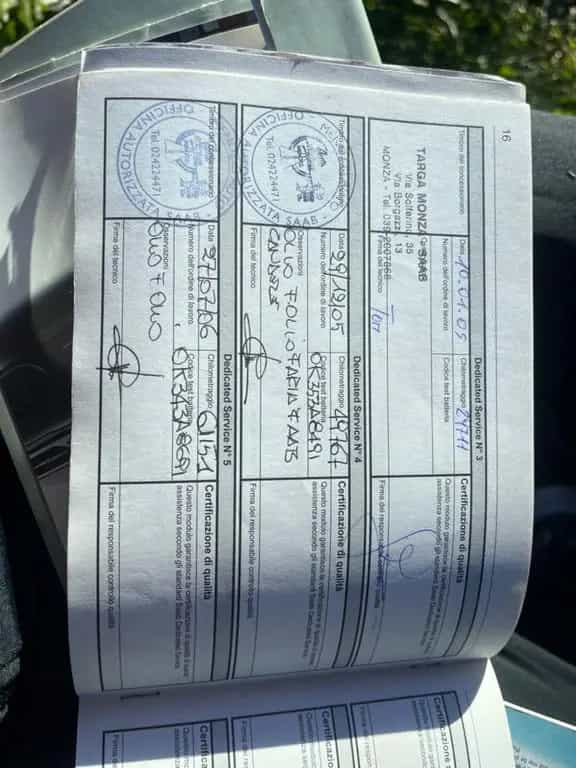 16
Dedicated Service N° 3
Timbro del concessionario
TARGA MONZA SAAB
Via Solferino, 35
Via Borgazzi, 13
MONZA - Tel. 039
Data 10.01.05
Chilometraggio
Numero dell'ordine di lavoro
Codice test batteria
Firma del tecnico
Certificazione di qualità
Questo modulo garantisce la certificazione di qualità
assistenza secondo gli standard Saab Dedicated Service.
Firma del responsabile controllo qualità
Dedicated Service N° 4
Timbro del concessionario
OFFICINA AUTORIZZATA SAAB
Tel. 024224471
Data 29/12/05
Chilometraggio 49767
Numero dell'ordine di lavoro
Codice test batteria
Osservazioni
OLIO F.OLIO F.ARIA
CANDELE
Firma del tecnico
Certificazione di qualità
Questo modulo garantisce la certificazione di qualità di tutte le
assistenza secondo gli standard Saab Dedicated Service.
Firma del responsabile controllo qualità
Dedicated Service N° 5
Timbro del concessionario
OFFICINA AUTORIZZATA
Tel. 024224471
Data 27/07/06
Chilometraggio 61151
Numero dell'ordine di lavoro
Codice test batteria
Osservazioni
OLIO F. OLIO
Firma del tecnico
Certificazione di qualità
Questo modulo garantisce la certificazione di qualità di tutte le
assistenza secondo gli standard Saab Dedicated Service.
Firma del responsabile controllo qualità
Certificazione
Questo modulo
assistenza
Firma del respon
Certificazione
Questo modulo
assistenza
Firma del
Certifica
Questo modulo
assistenza
Firma del